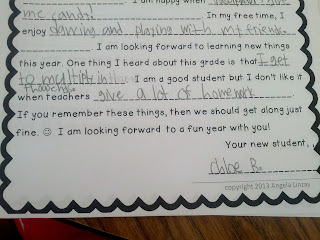 I am happy when
me candy! In my free time, I
enjoy dancing and playing with my friends.
I am looking forward to learning new things
this year. One thing I heard about this grade is that I get
to multiply in the
thousands. I am a good student but I don't like it
when teachers give a lot of homework.
If you remember these things, then we should get along just
fine. ☺ I am looking forward to a fun year with you!
Your new student,
chloe R.
copyright 2013 Angela Linzay